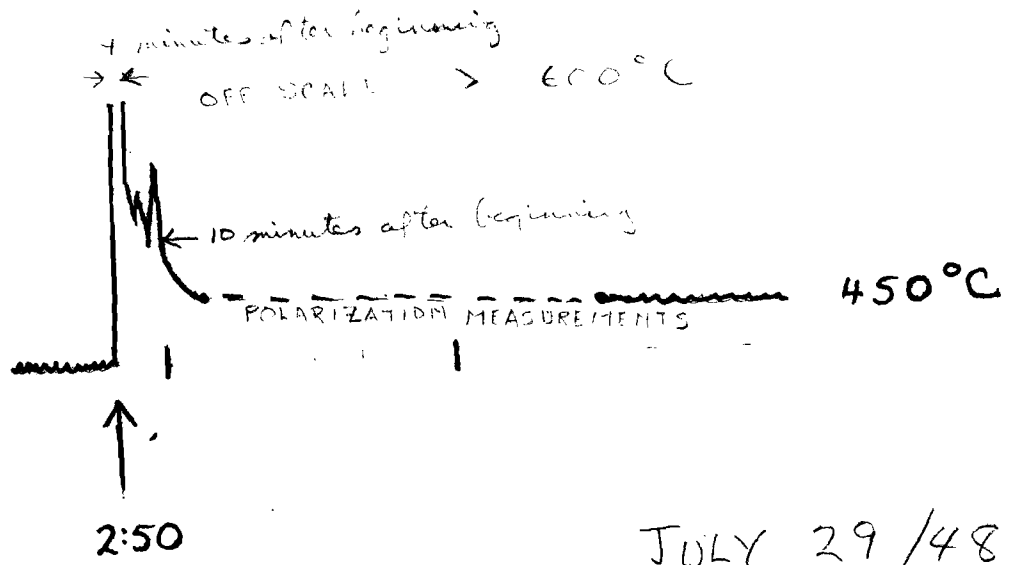 4 minutes after beginning
OFF SCALE > 600°C
10 minutes after beginning
450°C
POLARIZATION MEASUREMENTS
2:50
JULY 29/48